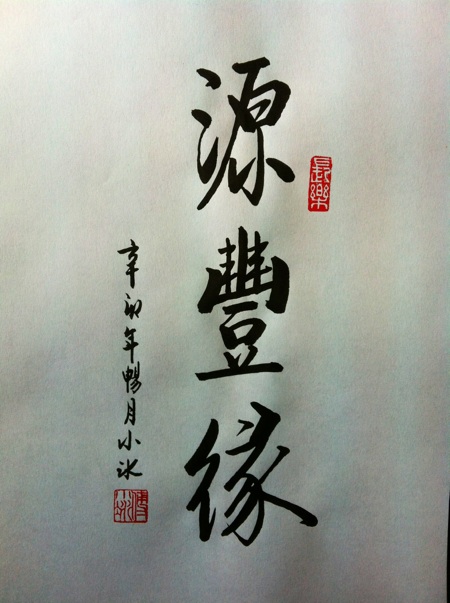 源豐緣
長樂
辛卯年暢月小冰